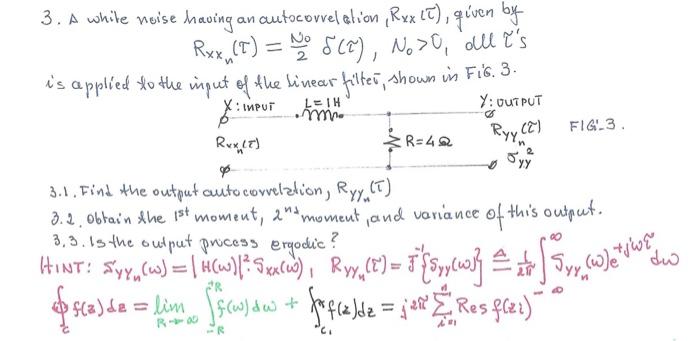 3. A white noise having an autocorrelation, Rxx(τ), given by
Rxxₙ(τ) = N₀/2 δ(τ), N₀>0, all τ's
is applied to the input of the linear filter, shown in FIG. 3.
X: INPUT L=1H Y: OUTPUT
Rxxₙ(τ) R=4Ω Ryyₙ(τ) FIG_3.
σyy²
3.1. Find the output autocorrelation, Ryyₙ(τ)
3.2. Obtain the 1st moment, 2nd moment, and variance of this output.
3.3. Is the output process ergodic?
HINT: Syyₙ(ω)=|H(ω)|²·Sxx(ω), Ryyₙ(τ)=F⁻¹{Syy(ω)} ≜ 1/2π ∫_{-∞}^{∞} Syyₙ(ω)e^{+jωτ} dω
∮_c f(z)dz = lim_{R→∞} ∫_{-R}^{+R} f(ω)dω + ∫_{c₁} f(z)dz = j2π Σ_{i=1}^{n} Res f(zi)